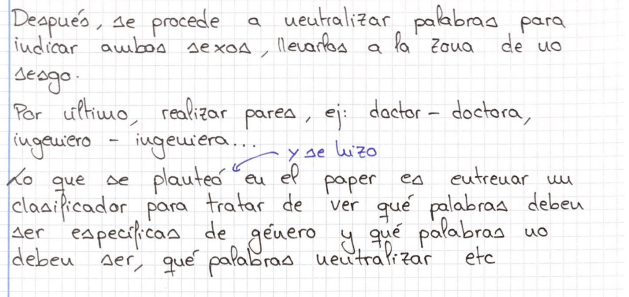 Después, se procede a neutralizar palabras para
indicar ambos sexos, llevarlas a la zona de no
sesgo.
Por último, realizar pares, ej: doctor - doctora,
ingeniero - ingeniera...
y se hizo
Lo que se planteó en el paper es entrenar un
clasificador para tratar de ver qué palabras deben
ser específicas de género y qué palabras no
deben ser, qué palabras neutralizar etc